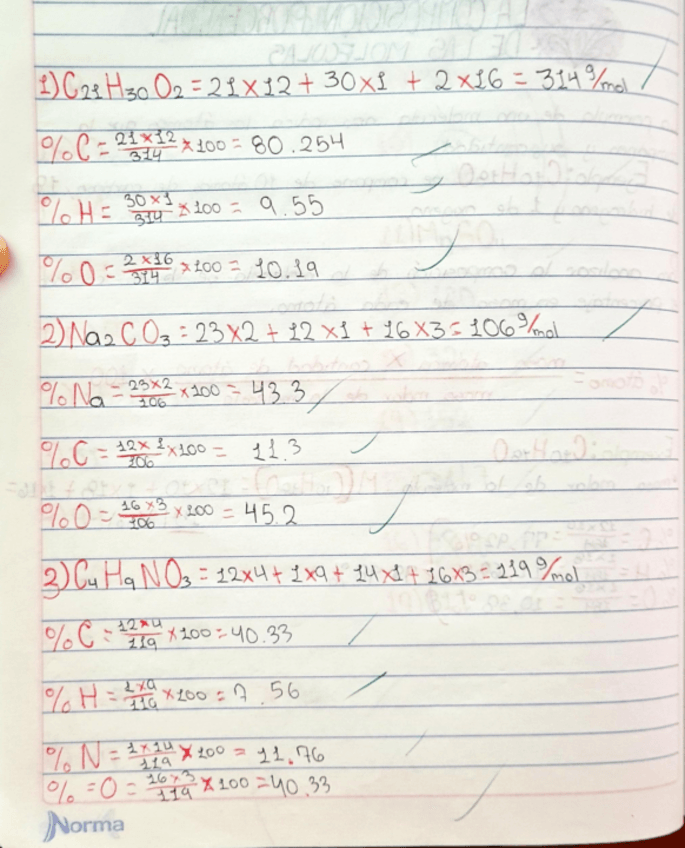 1) C₂₁H₃₀O₂ = 21×12 + 30×1 + 2×16 = 314 g/mol
%C = 21×12/314 ×100 = 80.254
%H = 30×1/314 ×100 = 9.55
%O = 2×16/314 ×100 = 10.19
2) Na₂CO₃ = 23×2 + 12×1 + 16×3 = 106 g/mol
%Na = 23×2/106 ×100 = 43.3
%C = 12×1/106 ×100 = 11.3
%O = 16×3/106 ×100 = 45.2
3) C₄H₉NO₃ = 12×4 + 1×9 + 14×1 + 16×3 = 119 g/mol
%C = 12×4/119 ×100 = 40.33
%H = 1×9/119 ×100 = 7.56
%N = 1×14/119 ×100 = 11.76
% = O = 16×3/119 ×100 = 40.33
Norma